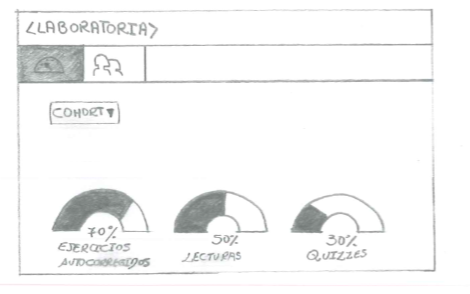 <LABORATORIA>
COHORT▼
70%
EJERCICIOS
AUTOCORREGIDOS
50%
LECTURAS
30%
QUIZZES